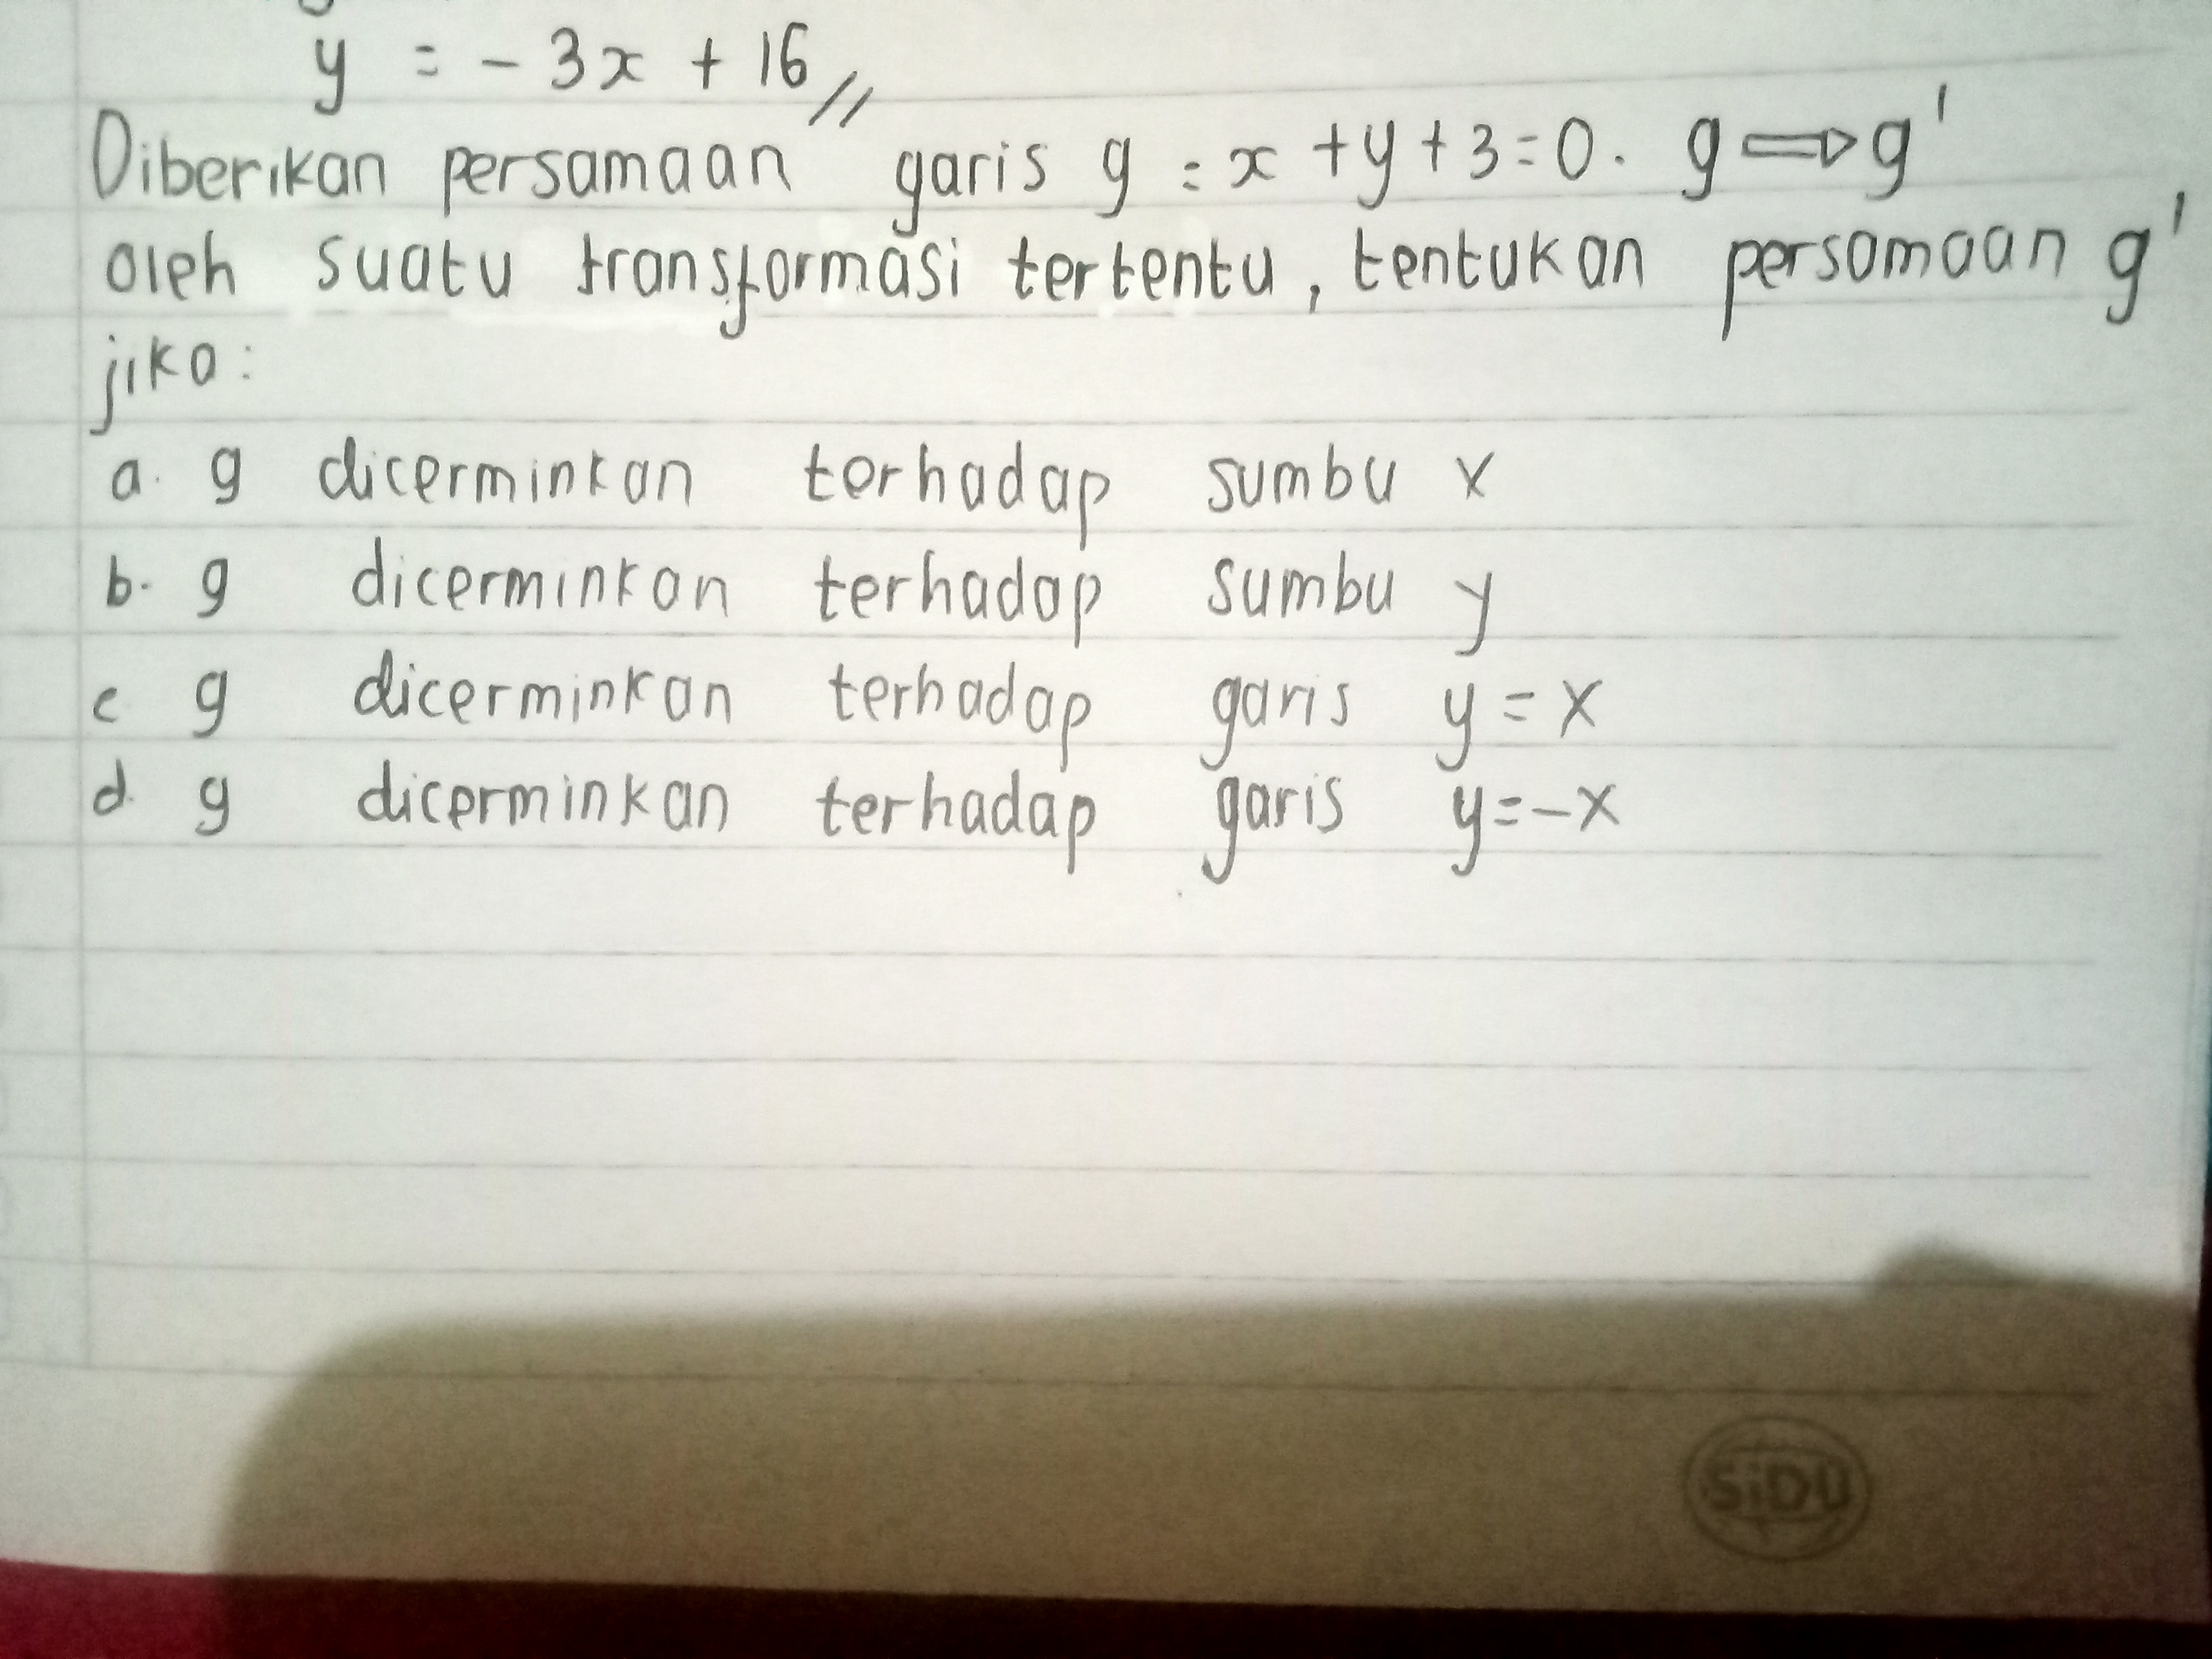 y = -3x + 16 //
Diberikan persamaan garis g = x + y + 3 = 0. g ⇒ g'
oleh suatu transformasi tertentu, tentukan persamaan g'
jika:
a. g dicerminkan terhadap sumbu x
b. g dicerminkan terhadap sumbu y
c g dicerminkan terhadap garis y = x
d. g dicerminkan terhadap garis y = -x
SiDU